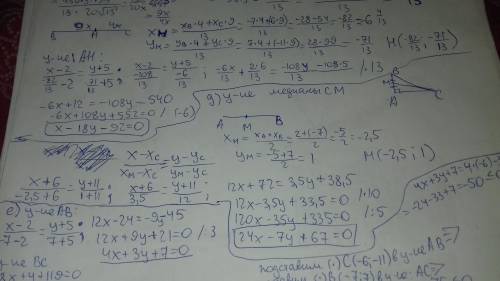 9x 4x
B A C
13 · 20√13
x_H = (x_B·4 + x_C·9)/13 = (-7·4 + (-6)·9)/13 = (-28-54)/13 = -82/13 = -6 4/13
y_H = (y_B·4 + y_C·9)/13 = (7·4 + (-11)·9)/13 = (28-99)/13 = -71/13 H(-82/13; -71/13)
у-ие AH:
(x-2)/(-82/13 -2) = (y+5)/(-71/13 +5); (x-2)/(-108/13) = (y+5)/(-6/13); -6x/13 + 2·6/13 = -108y/13 - 108·5/13 /·13
-6x+12 = -108y-540
-6x+108y+552=0 /:(-6)
x-18y-92=0
g) у-ие медианы CM
A M B
x_M = (x_A+x_B)/2 = (2+(-7))/2 = -5/2 = -2,5
y_M = (-5+7)/2 = 1 M(-2,5; 1)
(x-x_C)/(x_M-x_C) = (y-y_C)/(y_M-y_C)
(x+6)/(-2,5+6) = (y+11)/(1+11); (x+6)/3,5 = (y+11)/12;
12x+72=3,5y+38,5
12x-3,5y+33,5=0 /·10
120x-35y+335=0 /:5
24x-7y+67=0
e) у-ие AB:
(x-2)/(-7-2) = (y+5)/(7+5); 12x-24=-9y-45
12x+9y+21=0 /:3
4x+3y+7=0
у-ие BC
4x+3y+7=4·(-6)
-24-33+7=-50≤0
подставим (·) C(-6;-11) в у-ие AB =>
(·) B(-7;7) в у-ие AC =>
B
A C